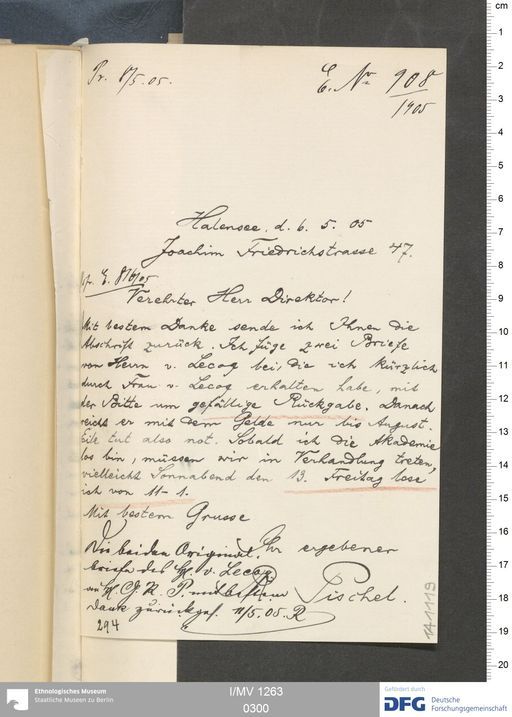 Pr. 8/5. 05.
E. No 908
1905
Halensee, d. 6. 5. 05
Joachim Friedrichstrasse 47.
E. 816/05
Verehrter Herr Direktor!
Mit bestem Danke sende ich Ihnen die
Abschrift zurück. Ich füge zwei Briefe
von Herrn v. Lecoq bei, die ich kürzlich
durch Frau v. Lecoq erhalten habe, mit
der Bitte um gefällige Rückgabe. Danach
reicht er mit dem Gelde nur bis August.
Eile tut also not. Sobald ich die Akademie
los bin, müssen wir in Verhandlung treten,
vielleicht Sonnabend den 13. Freitag lese
ich von 11-1.
Mit bestem Grusse
Ihr ergebener
Pischel.
Die beiden Original
briefe des H. v. Lecoq
an H. G. R. P. mit bestem
Dank zurückges. 11/5. 05. R
294
141119
cm
1
2
3
4
5
6
7
8
9
10
11
12
13
14
15
16
17
18
19
20
Ethnologisches Museum
Staatliche Museen zu Berlin
I/MV 1263
0300
Gefördert durch
DFG Deutsche
Forschungsgemeinschaft